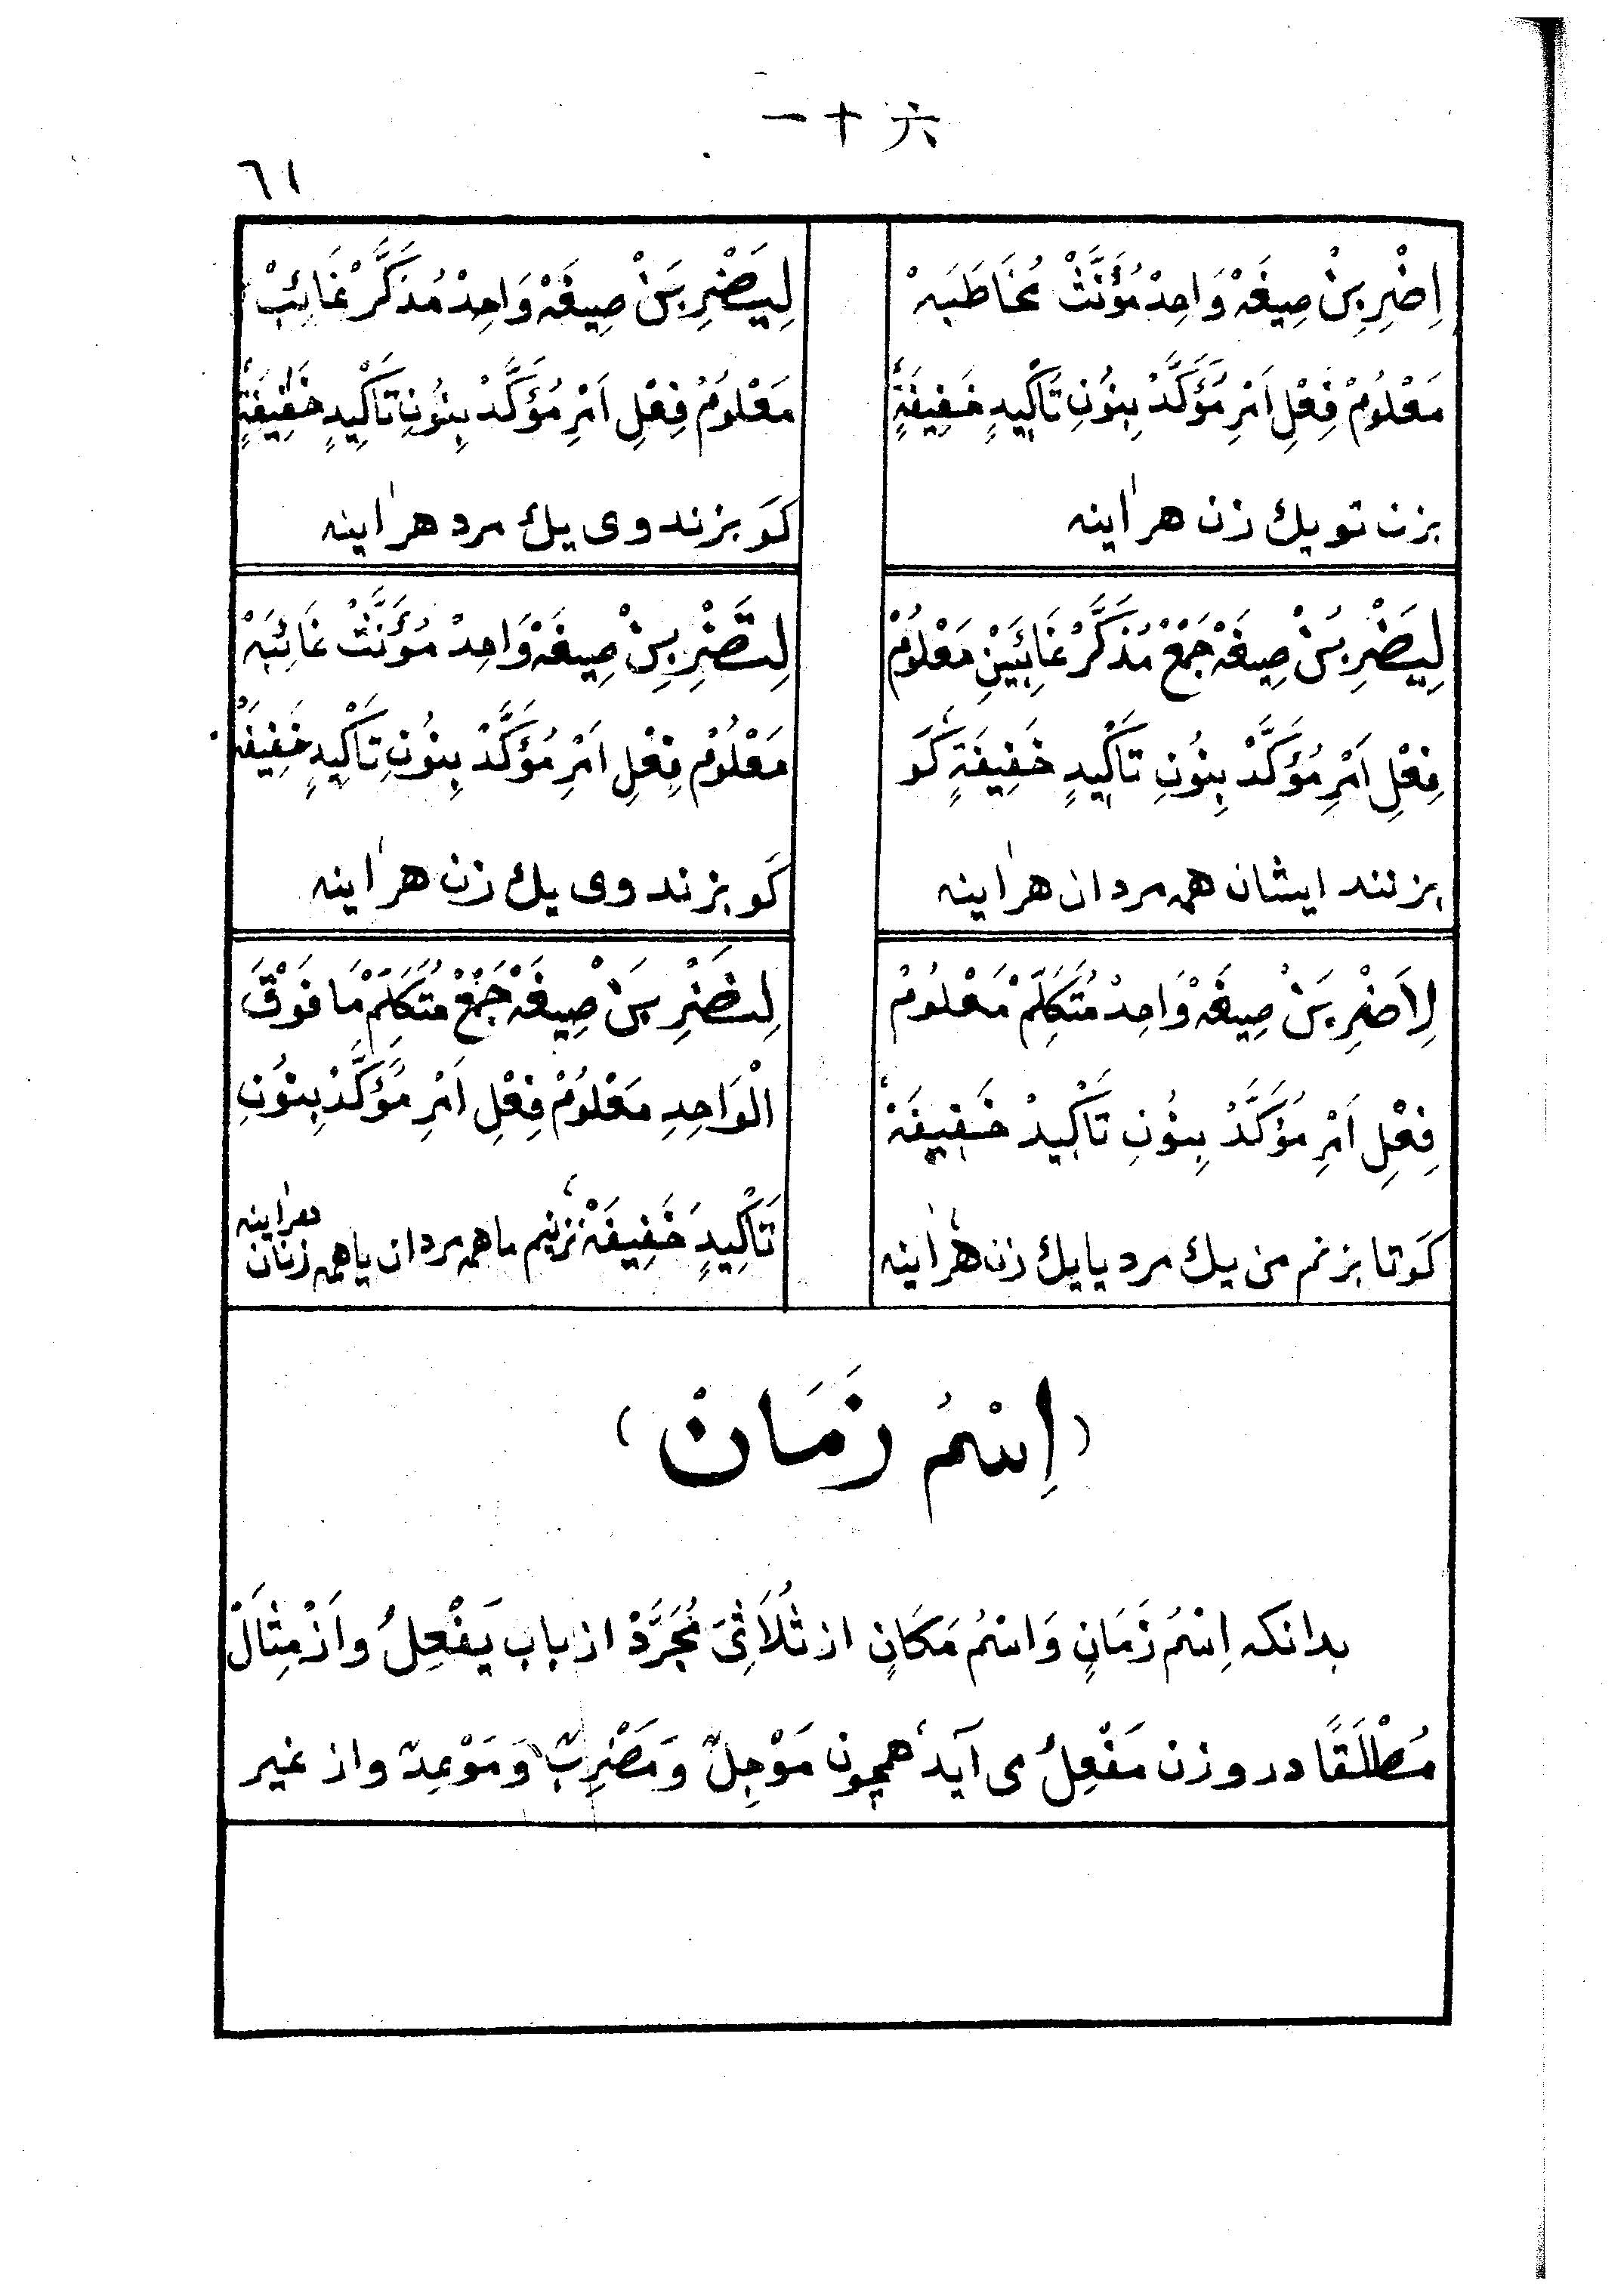 六十一
٦١
اِضْرِبِنْ صِيغَهْ وَاحِدْ مُؤَنَّثْ مُخَاطَبَهْ
مَعْلُومْ فِعْلِ اَمْرِ مُؤَكَّدْ بِنُونِ تَاْكِيدٍ خَفِيفَةٍ
بزن تو يك زن هراينه
لِيَضْرِبَنْ صِيغَهْ وَاحِدْ مُذَكَّرْ غَائِبْ
مَعْلُومْ فِعْلِ اَمْرِ مُؤَكَّدْ بِنُونِ تَاْكِيدٍ خَفِيفَةٍ
كَو بزند وى يك مرد هراينه
لِيَضْرِبُنْ صِيغَهْ جَمْعْ مُذَكَّرْ غَائِبَيْنِ مَعْلُومْ
فِعْلِ اَمْرِ مُؤَكَّدْ بِنُونِ تَاْكِيدٍ خَفِيفَةٍ كَو
بزنند ايشان همه مردان هراينه
لِتَضْرِبِنْ صِيغَهْ وَاحِدْ مُؤَنَّثْ غَائِبَهْ
مَعْلُومْ فِعْلِ اَمْرِ مُؤَكَّدْ بِنُونِ تَاْكِيدٍ خَفِيفَهْ
كَو بزند وى يك زن هراينه
لِاَضْرِبَنْ صِيغَهْ وَاحِدْ مُتَكَلِّمْ مَعْلُومْ
فِعْلِ اَمْرِ مُؤَكَّدْ بِنُونِ تَاْكِيدْ خَفِيفَهْ
كَو تا بزنم من يك مرد يا يك زن هراينه
لِنَضْرِبَنْ صِيغَهْ جَمْعْ مُتَكَلِّمْ مَا فَوْقَ
الْوَاحِدِ مَعْلُومْ فِعْلِ اَمْرِ مُؤَكَّدْ بِنُونِ
تَاْكِيدٍ خَفِيفَهْ بزنيم ما همه مردان يا همه زنان هراينه
(اِسْمُ زَمَانْ)
بدانكه اِسْمُ زَمَانٍ وَاسْمُ مَكَانٍ از ثُلَاثِىَ مُجَرَّدْ از باب يَفْعِلُ و اَزْ مِثَالْ
مُطْلَقًا در وزن مَفْعِلُ مى آيد همچون مَوْجِلٌ وَمَضْرِبٌ وَمَوْعِدٌ و از غير